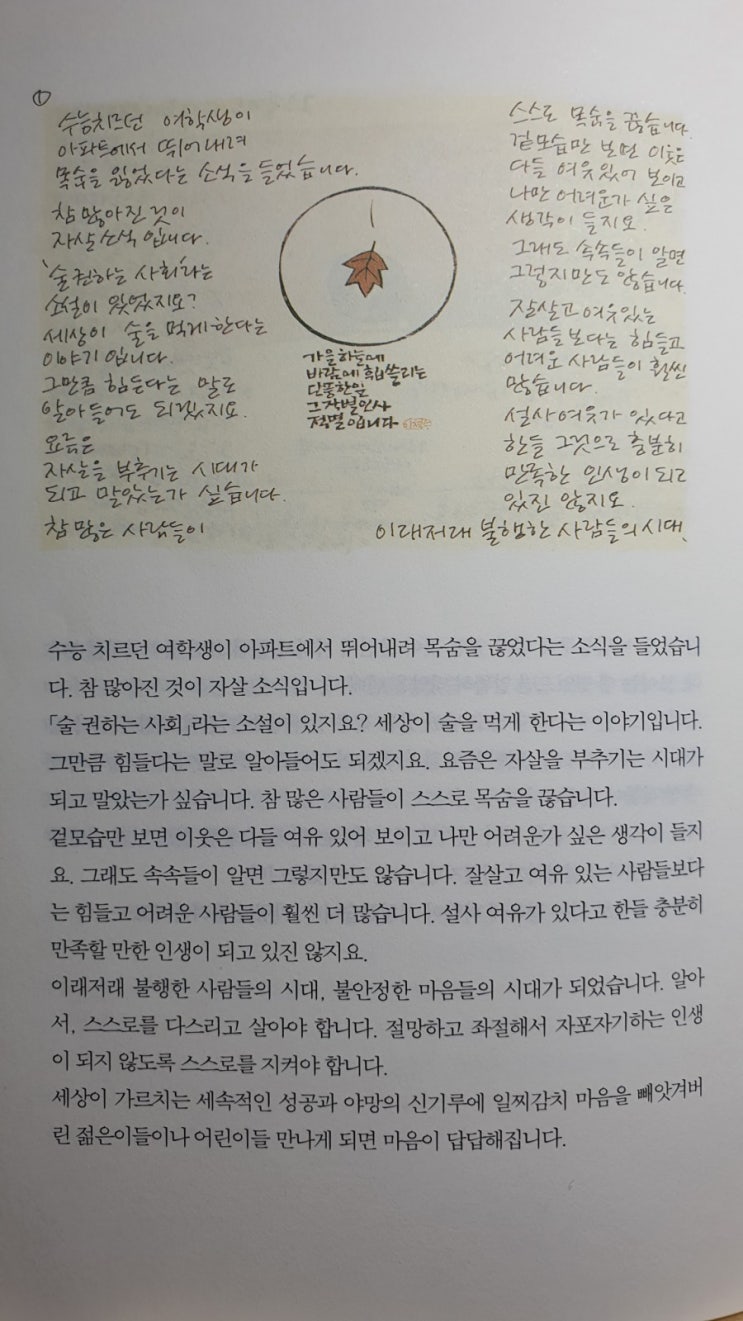 ①
수능치르던 여학생이
아파트에서 뛰어내려
목숨을 잃었다는 소식을 들었습니다.
참 많아진 것이
자살 소식입니다.
'술 권하는 사회'라는
소설이 있었지요?
세상이 술을 먹게 한다는
이야기입니다.
그만큼 힘든다는 말로
알아들어도 되겠지요.
요즘은
자살을 부추기는 시대가
되고 말았는가 싶습니다.
참 많은 사람들이
가을하늘에
바람에 휩쓸리는
단풍한잎
그 작별인사
적멸입니다
스스로 목숨을 끊습니다.
겉모습만 보면 이웃은
다들 여유있어 보이고
나만 어려운가 싶은
생각이 들지요.
그래도 속속들이 알면
그렇지만도 않습니다.
잘살고 여유있는
사람들보다는 힘들고
어려운 사람들이 훨씬
많습니다.
설사 여유가 있다고
한들 그것으로 충분히
만족한 인생이 되고
있진 않지요.
이래저래 불행한 사람들의 시대,
수능 치르던 여학생이 아파트에서 뛰어내려 목숨을 끊었다는 소식을 들었습니
다. 참 많아진 것이 자살 소식입니다.
「술 권하는 사회」라는 소설이 있지요? 세상이 술을 먹게 한다는 이야기입니다.
그만큼 힘들다는 말로 알아들어도 되겠지요. 요즘은 자살을 부추기는 시대가
되고 말았는가 싶습니다. 참 많은 사람들이 스스로 목숨을 끊습니다.
겉모습만 보면 이웃은 다들 여유 있어 보이고 나만 어려운가 싶은 생각이 들지
요. 그래도 속속들이 알면 그렇지만도 않습니다. 잘살고 여유 있는 사람들보다
는 힘들고 어려운 사람들이 훨씬 더 많습니다. 설사 여유가 있다고 한들 충분히
만족할 만한 인생이 되고 있진 않지요.
이래저래 불행한 사람들의 시대, 불안정한 마음들의 시대가 되었습니다. 알아
서, 스스로를 다스리고 살아야 합니다. 절망하고 좌절해서 자포자기하는 인생
이 되지 않도록 스스로를 지켜야 합니다.
세상이 가르치는 세속적인 성공과 야망의 신기루에 일찌감치 마음을 빼앗겨버
린 젊은이들이나 어린이들 만나게 되면 마음이 답답해집니다.